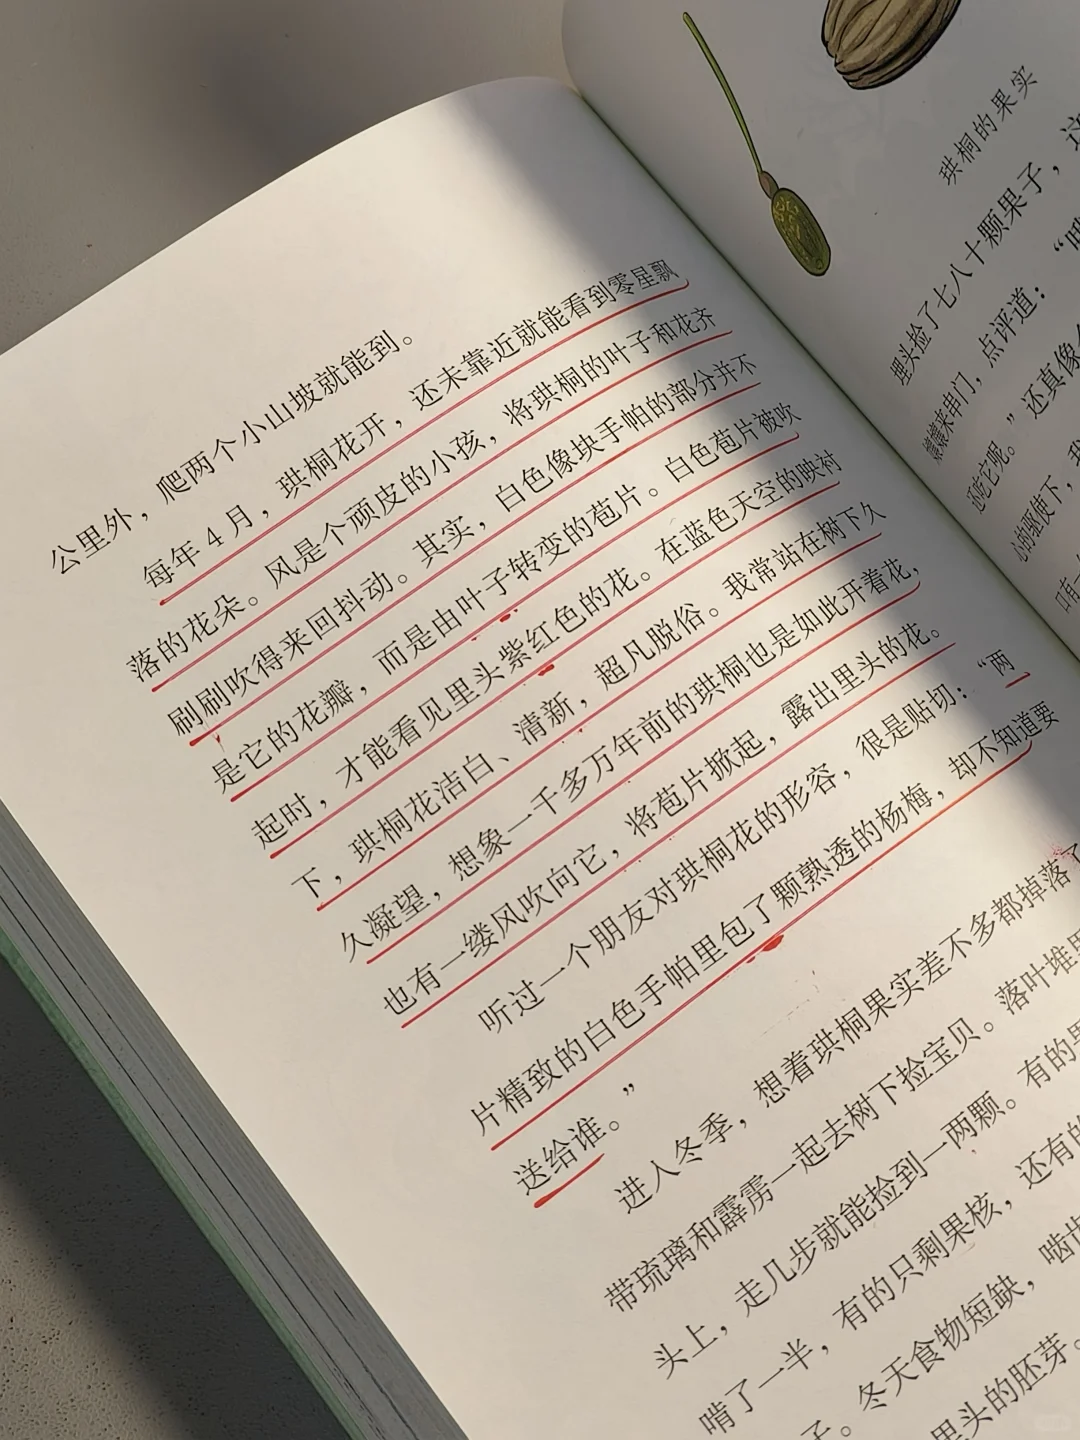 公里外，爬两个小山坡就能到。
每年4月，珙桐花开，还未靠近就能看到零星飘
落的花朵。风是个顽皮的小孩，将珙桐的叶子和花齐
刷刷吹得来回抖动。其实，白色像块手帕的部分并不
是它的花瓣，而是由叶子转变的苞片。白色苞片被吹
起时，才能看见里头紫红色的花。在蓝色天空的映衬
下，珙桐花洁白、清新，超凡脱俗。我常站在树下久
久凝望，想象一千多万年前的珙桐也是如此开着花，
也有一缕风吹向它，将苞片掀起，露出里头的花。
听过一个朋友对珙桐花的形容，很是贴切：“两
片精致的白色手帕里包了颗熟透的杨梅，却不知道要
送给谁。”
进入冬季，想着珙桐果实差不多都掉落了
带琉璃和霹雳一起去树下捡宝贝。落叶堆里
头上，走几步就能捡到一两颗。有的果
啃了一半，有的只剩果核，还有的
子。冬天食物短缺，啮齿
里头的胚芽。
珙桐的果实
埋头捡了七八十颗果子，这
来串门，点评道：“哦
还吃它呢。”还真像
心的驱使下，我
口有一